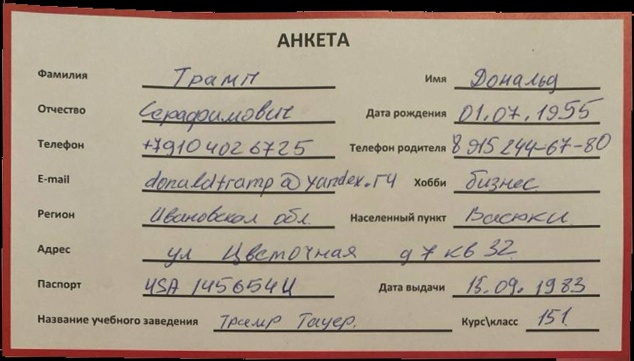 АНКЕТА
Фамилия Трамп Имя Дональд
Отчество Серафимович Дата рождения 01.07.1955
Телефон +7910 402 6725 Телефон родителя 8 915 244-67-80
E-mail donaldtramp@yandex.ru Хобби бизнес
Регион Ивановская обл. Населенный пункт Васюки
Адрес ул Цветочная д 7 кв 32
Паспорт USA Дата выдачи 15.09.1983
Название учебного заведения Трамр Тауер. Курс\класс 151